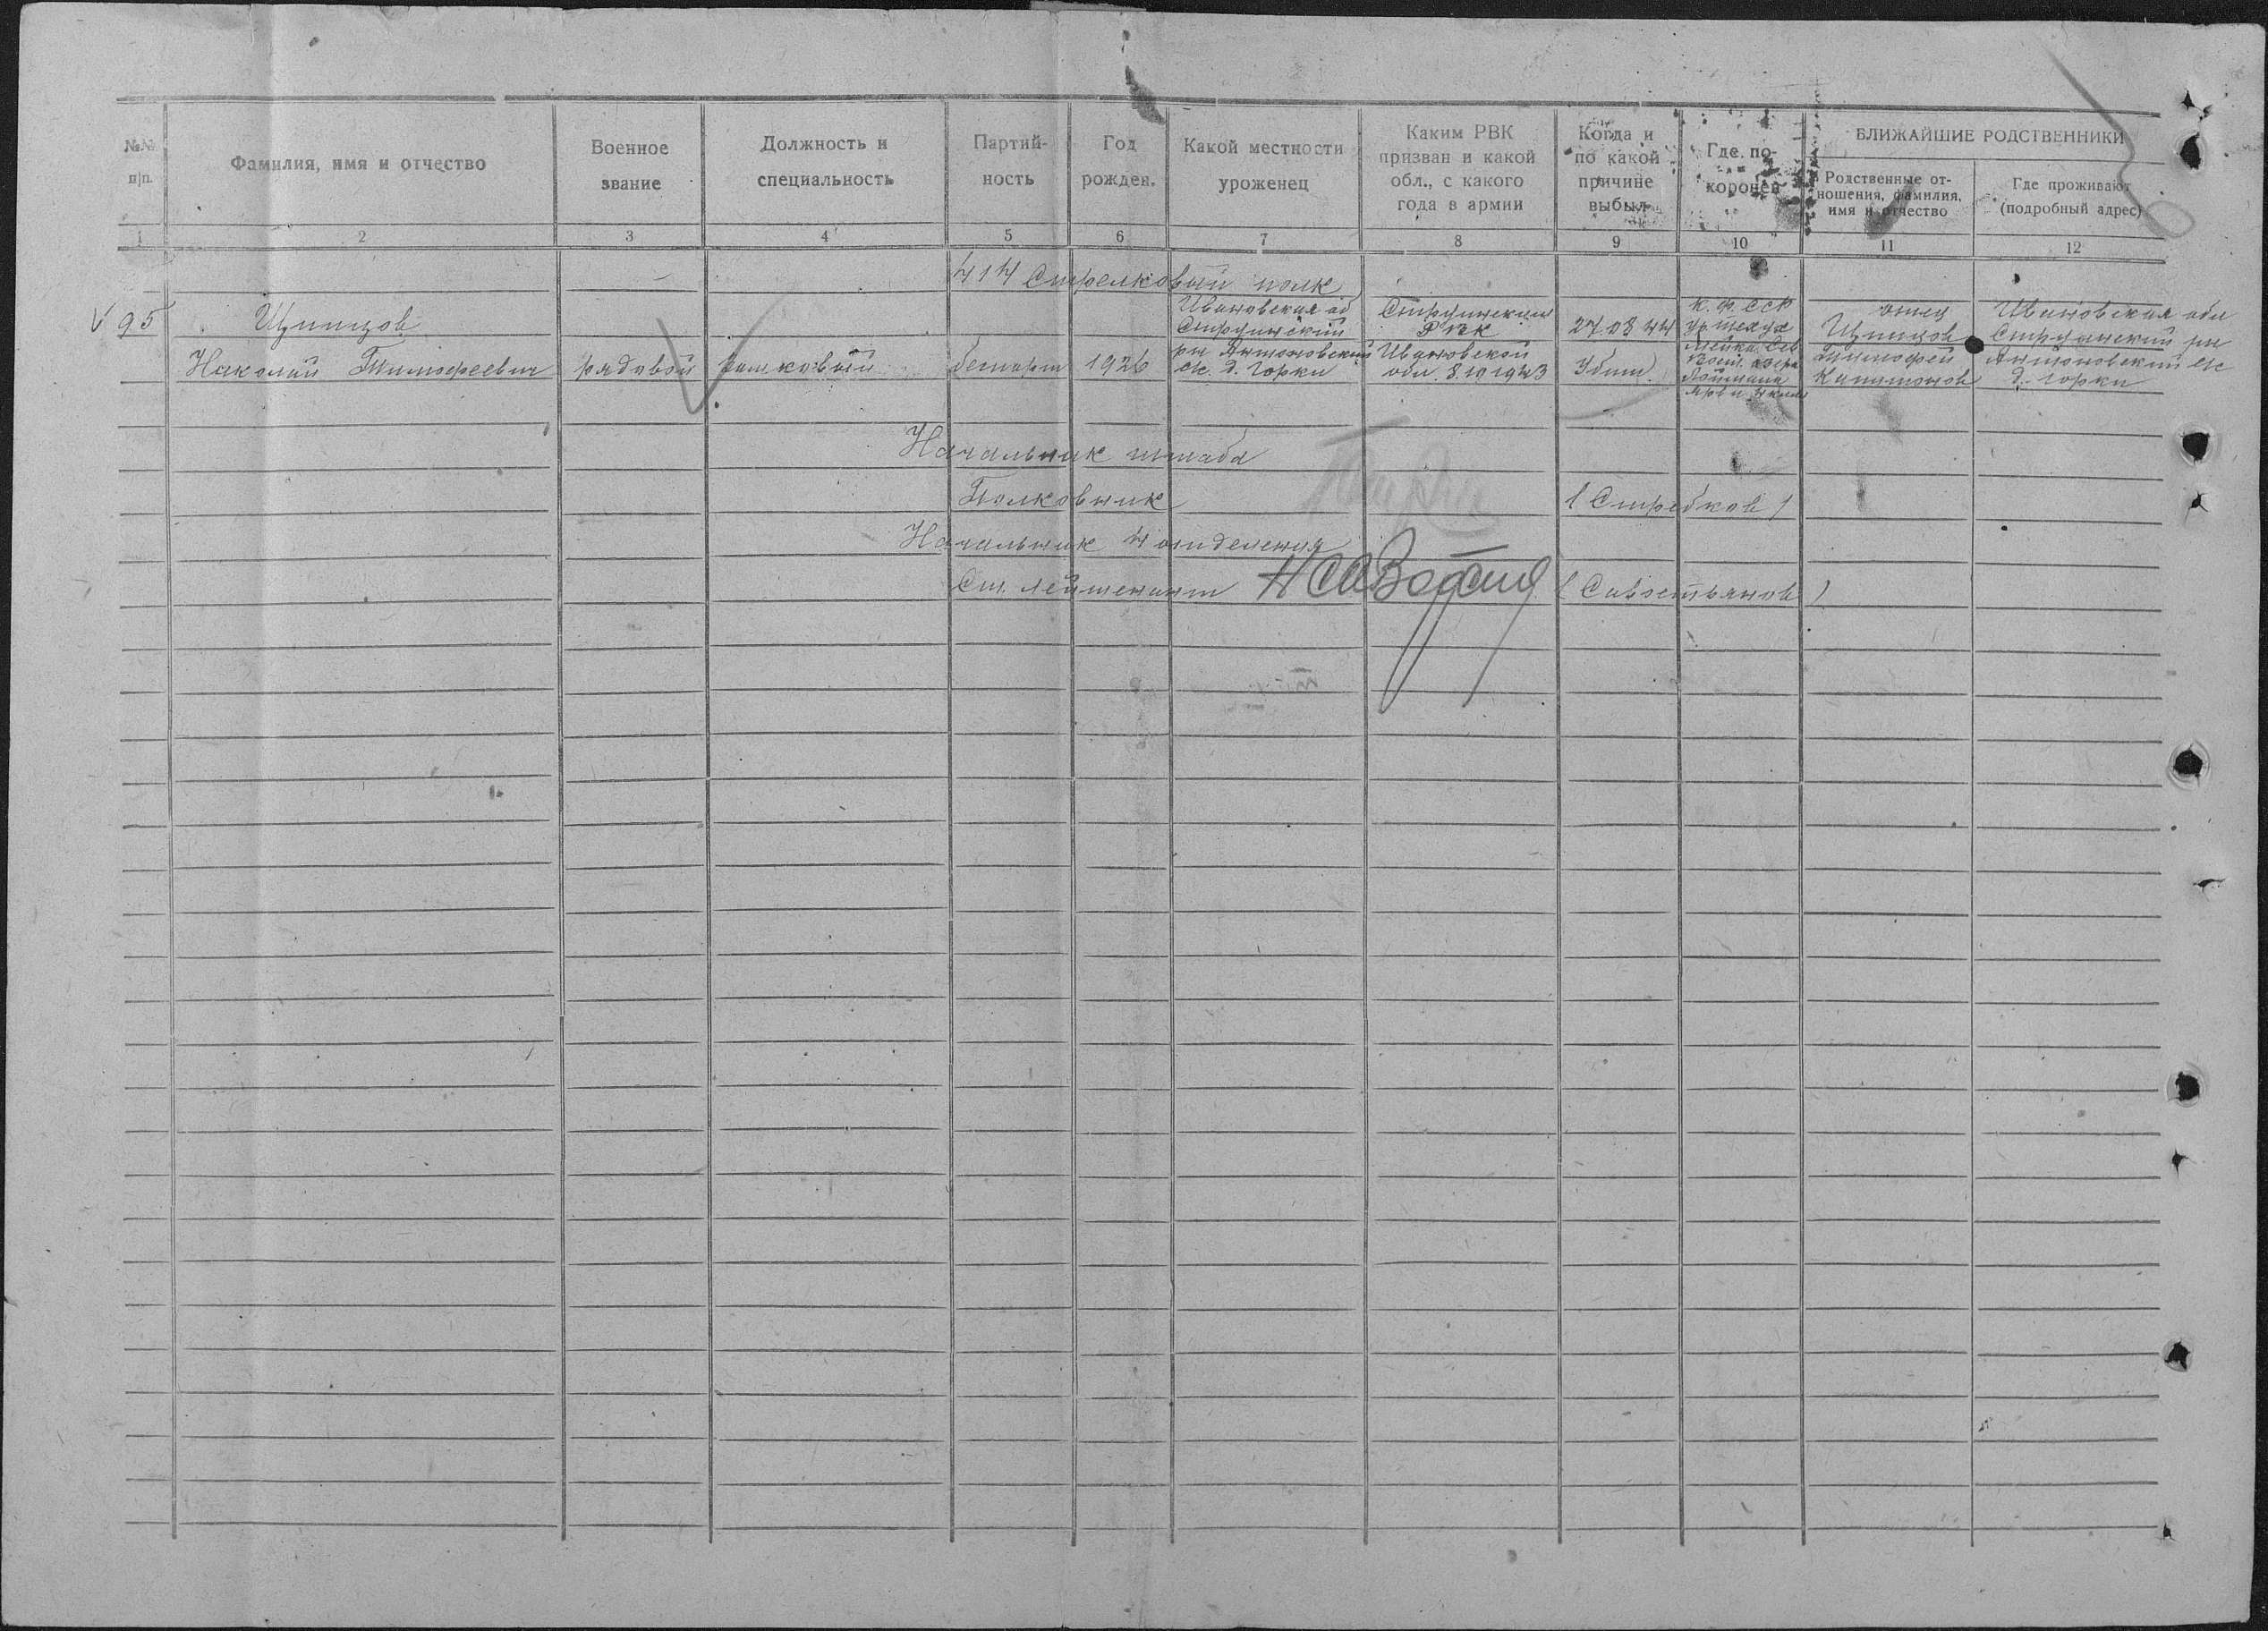 №№ п|п.
Фамилия, имя и отчество
Военное звание
Должность и специальность
Партий- ность
Год рожден.
Какой местности уроженец
Каким РВК призван и какой обл., с какого года в армии
Когда и по какой причине выбыл
Где по- коронен
БЛИЖАЙШИЕ РОДСТВЕННИКИ
Родственные от- ношения, фамилия, имя и отчество
Где проживают (подробный адрес)
1 2 3 4 5 6 7 8 9 10 11 12
414 Стрелковый полк
95
Николай Тимофеевич
рядовой
беспарт
1926
Ивановская об
рн Антоновский
с/с. д. Горки
РВК
Ивановской
обл. 8.10 1943
27.08 44
Убит
К. Ф. ССР
отец
Тимофей
Ивановская обл
Антоновский с/с
д. Горки
Начальник штаба
Полковник
( Стребков )
Начальник 4 отделения
Ст. лейтенант
( Савостьянов )